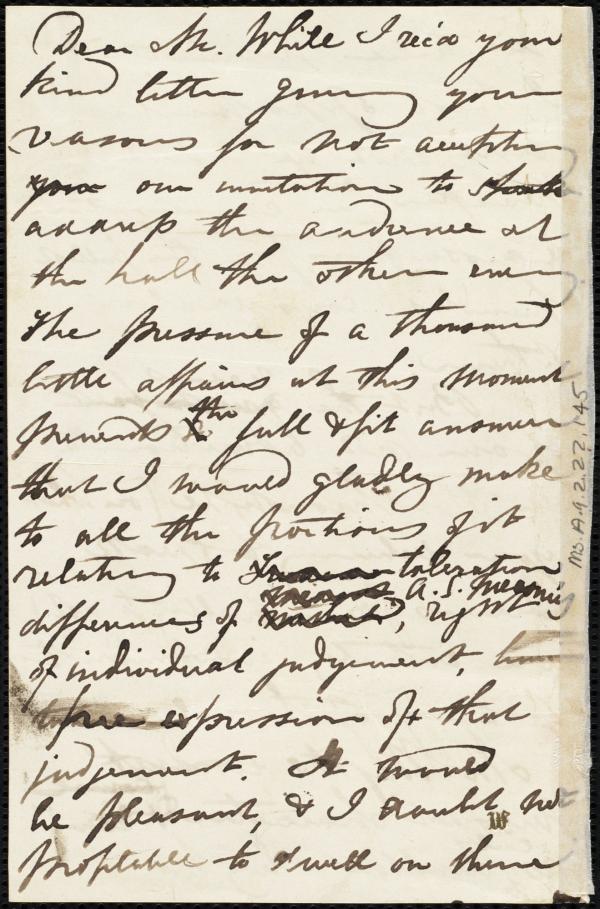 Dear Mr. White I rec'd your
kind letter giving your
reasons for not accepting
your our invitation to speak
address the audience at
the hall the other eveng
The pressure of a thousand
little affairs at this moment
prevents the full & fit answer
that I would gladly make
to all the portions of it
relating to toleration
differences of A. S. meaning
, right
of individual judgement,
free expression of that
judgement. It would
be pleasant, & I doubt not
profitable to dwell on these
Ms. A.9.2.27, 145
W